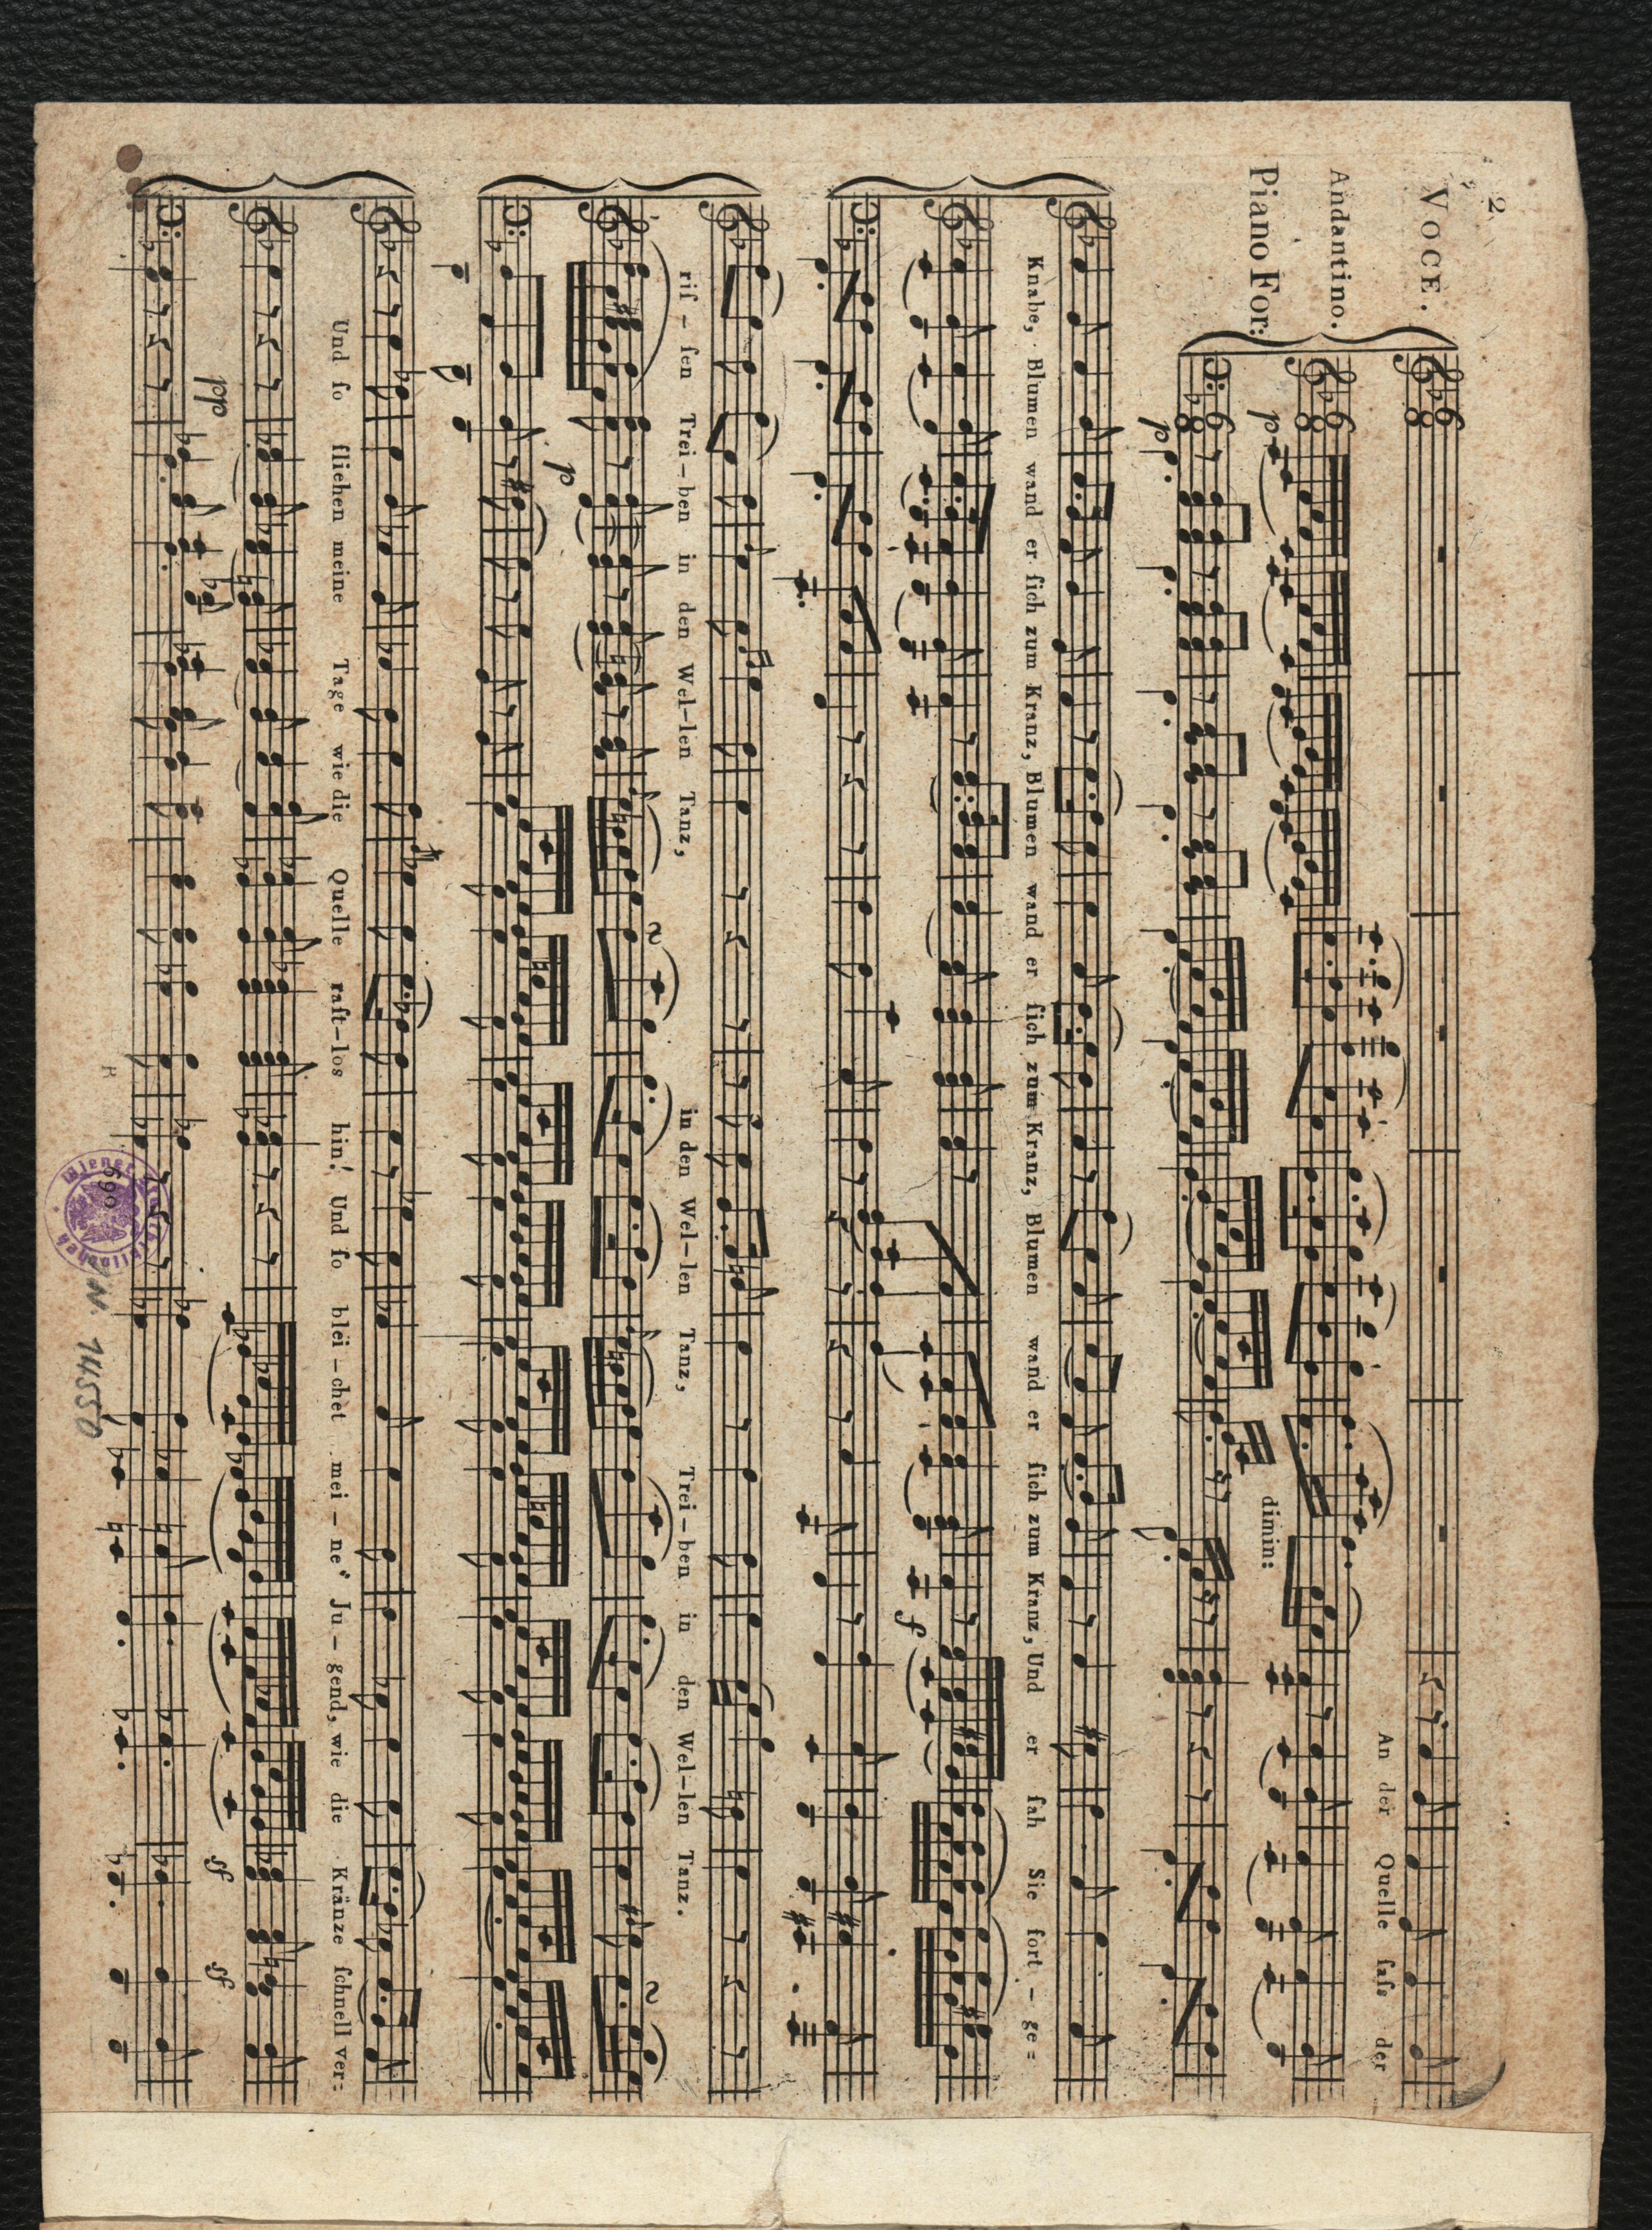 2
VOCE.
Andantino.
Piano For:
p
p
dimin:
An der Quelle ſaſs der
Knabe, Blumen wand er ſich zum Kranz, Blumen wand er ſich zum Kranz, Blumen wand er ſich zum Kranz, Und er ſah Sie fort - ge =
f
riſ - ſen Trei - ben in den Wel - len Tanz, in den Wel - len Tanz, Trei - ben in den Wel - len Tanz.
p
Und ſo fliehen meine Tage wie die Quelle raſt - los hin! Und ſo blei - chet mei - ne Ju - gend, wie die Kränze ſchnell ver =
pp
sf
sf
690
14550